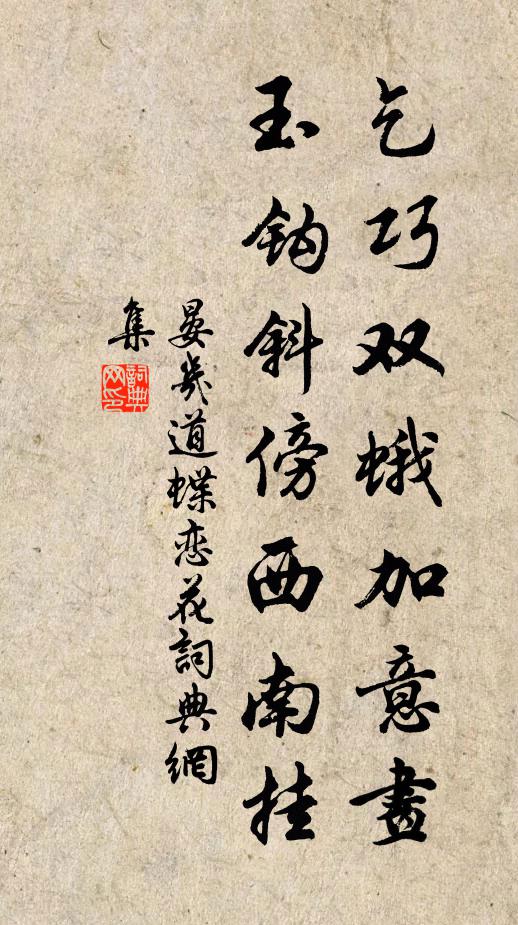 乞巧双蛾加意畫
玉钩斜傍西南挂
晏幾道蝶恋花詞典網
集
詞典网印